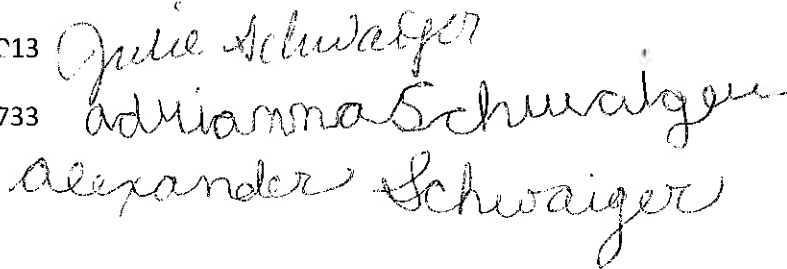 013 Julie Schwaiger
733 adrianna Schwaiger
Alexander Schwaiger